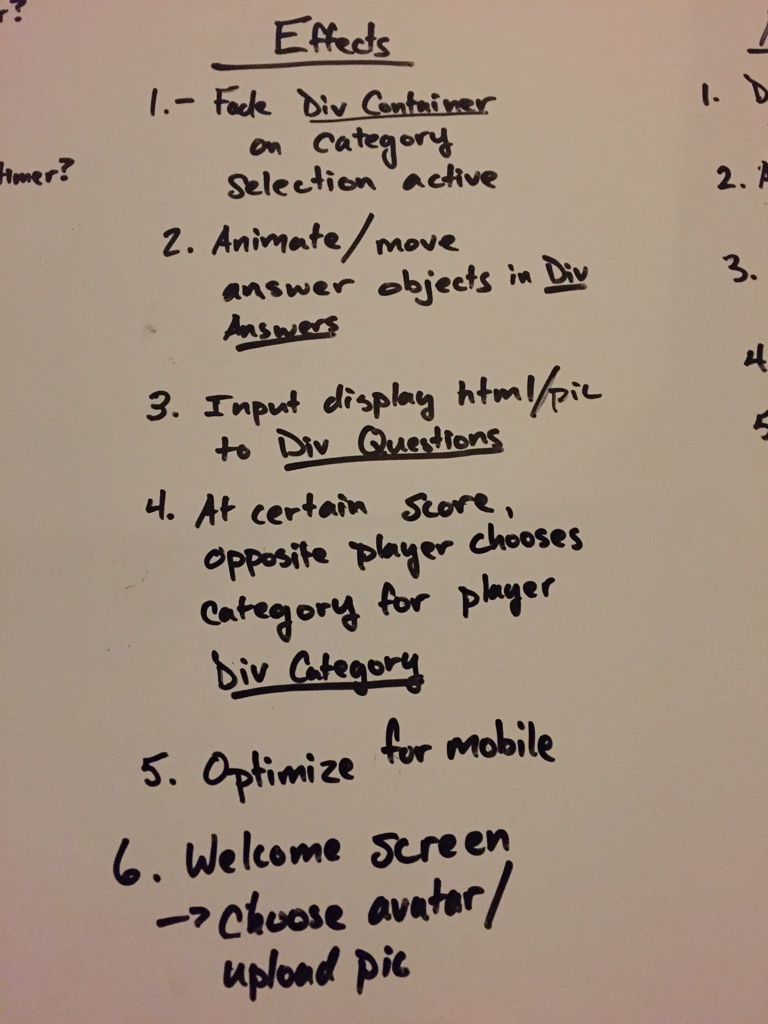 r?
timer?
Effects
1.- Fade Div Container
on category
selection active
2. Animate/move
answer objects in Div
Answers
3. Input display html/pic
to Div Questions
4. At certain score,
opposite player chooses
category for player
Div Category
5. Optimize for mobile
6. Welcome screen
-> choose avatar/
upload pic
1. D
2. A
3.
4
5